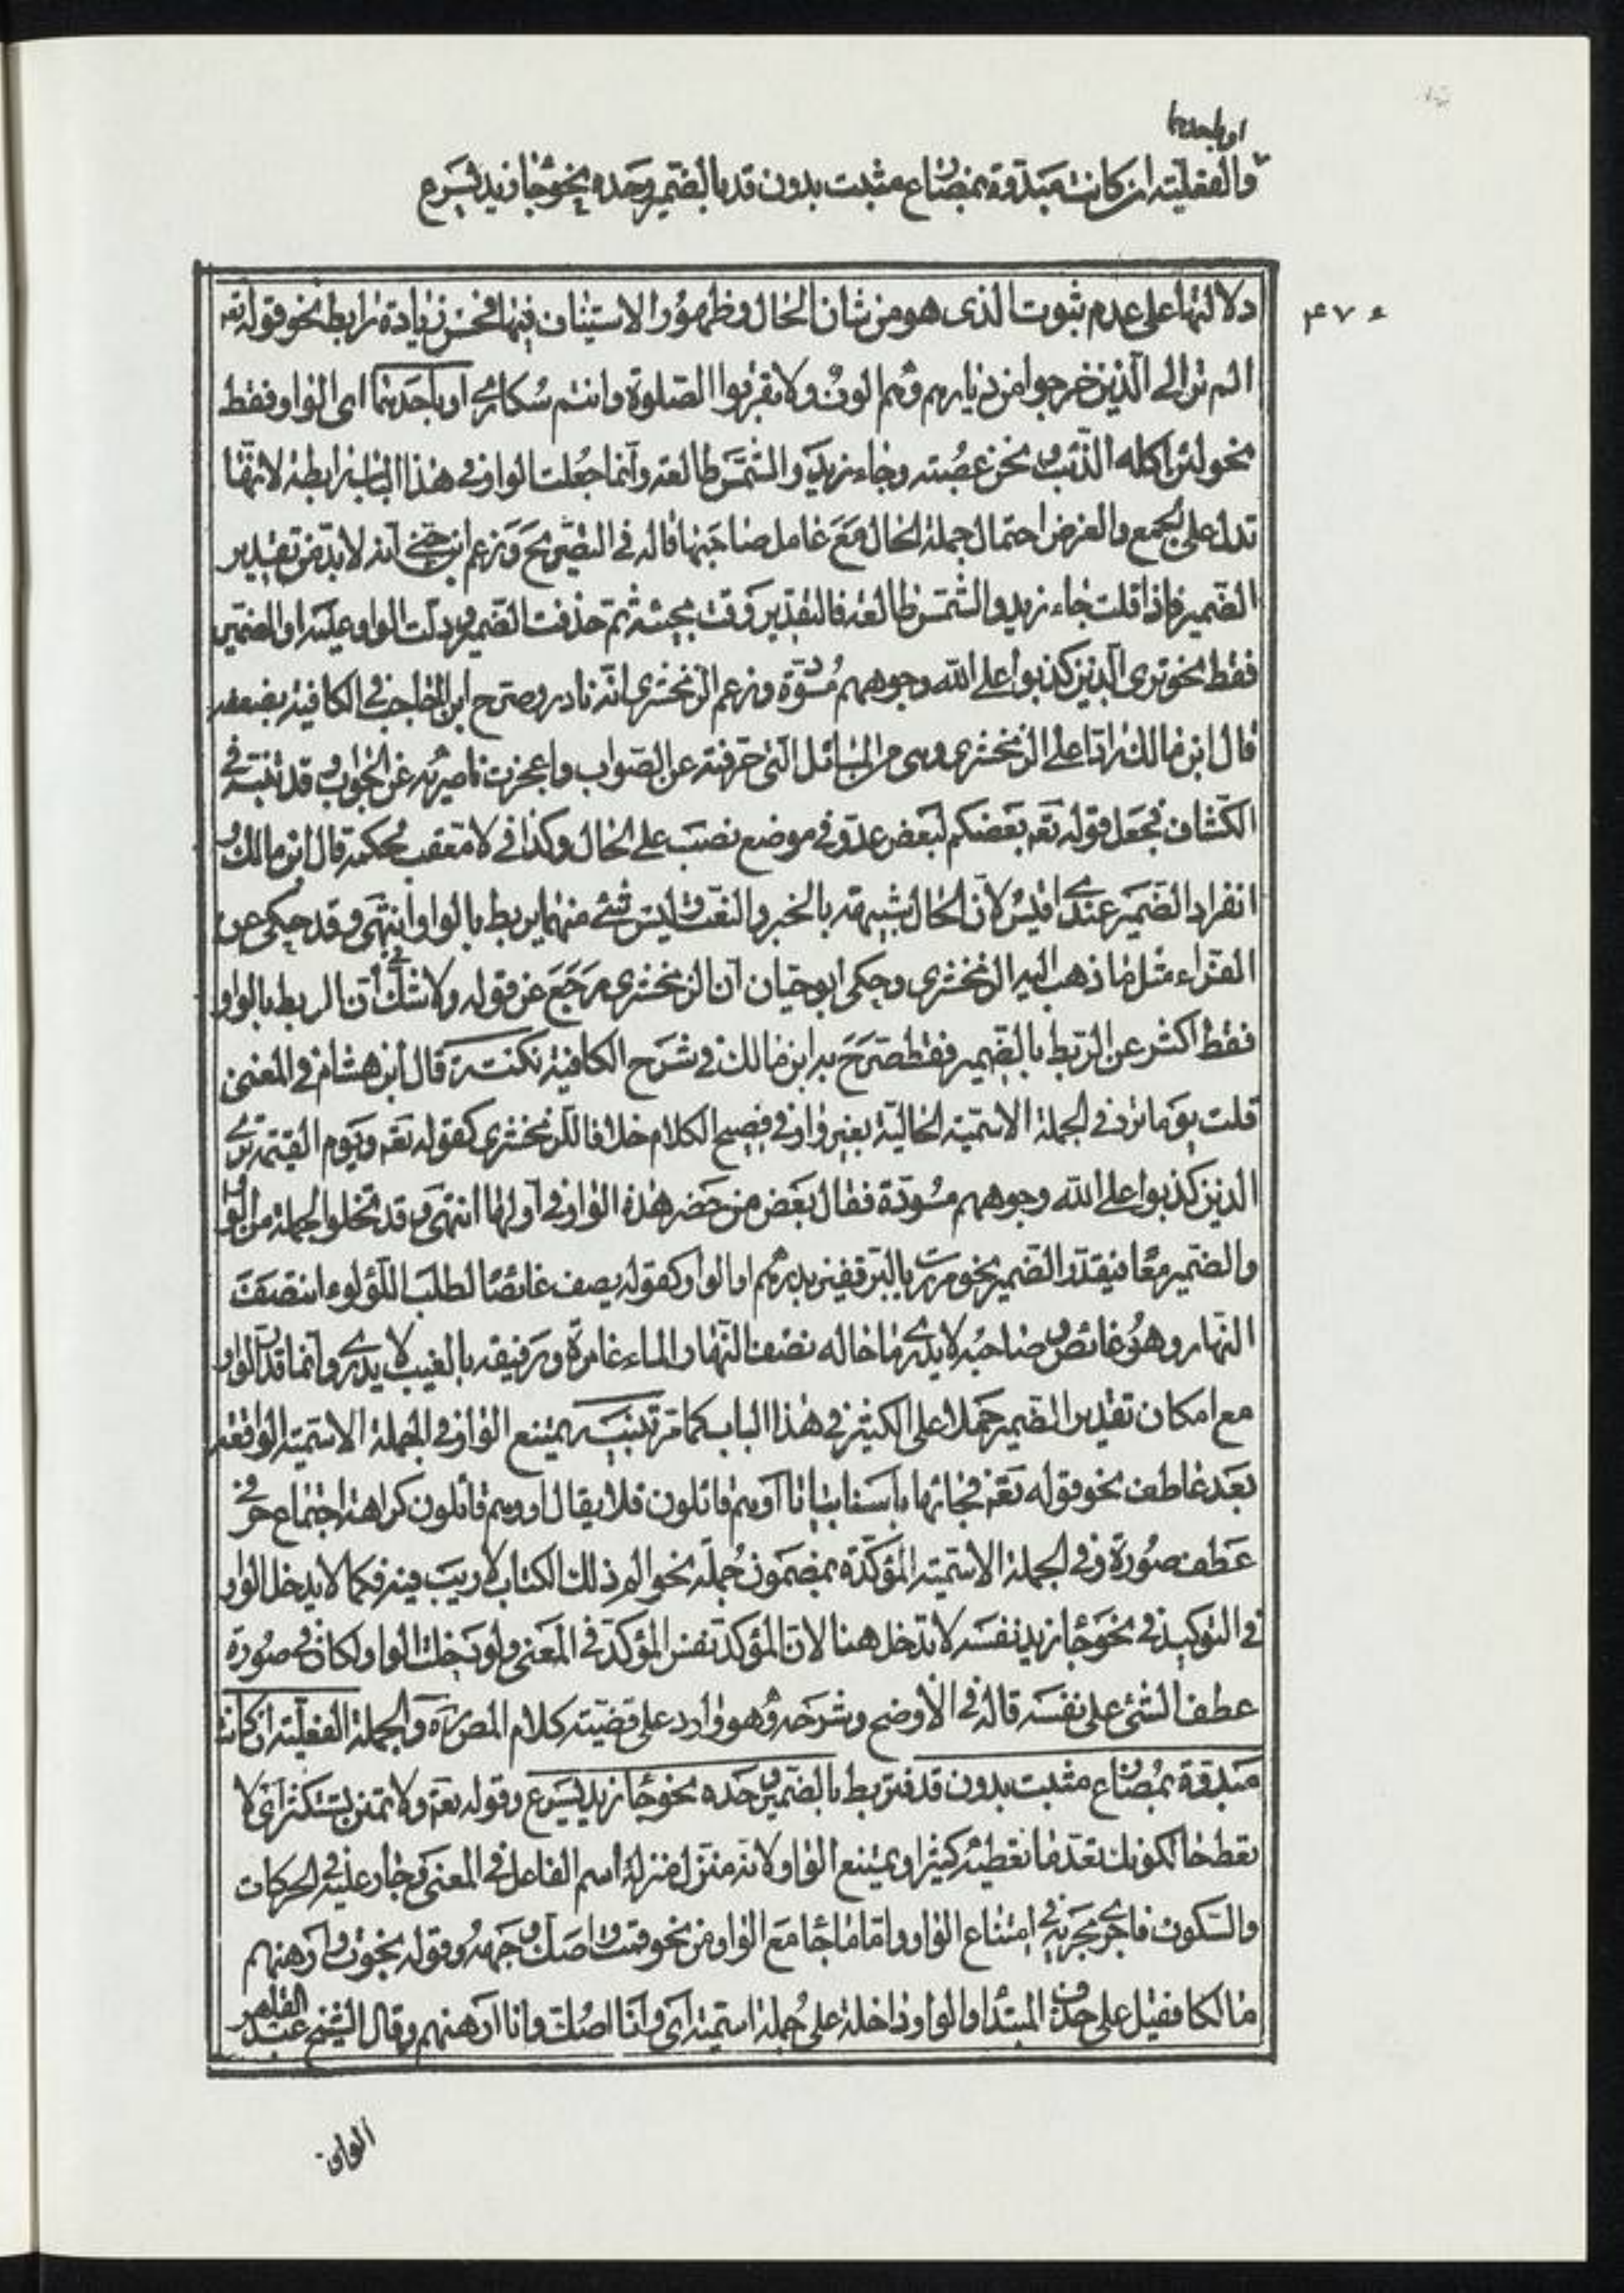 او باحدهما
والفعلية ان كانت مبدوة بمضارع مثبت بدون قد بالضمير وحده نحو جاء زيد يسرع
٤٧٠
دلالتها على عدم ثبوت الذى هو من شان الحال وظهور الاستيناف فيها فحسن زيادة رابط نحو قوله تعه
الم تر الى الذين خرجوا من ديارهم وهم الوف ولا تقربوا الصلوة وانتم سكارى او باحدهما اى الواو فقط
نحو لئن اكله الذئب ونحن عصبته وجاء زيد والشمس طالعة وانما جعلت الواو فى هذا الباب رابطة لانها
تدل على الجمع والغرض احتمال جملة الحال مع عامل صاحبها قاله فى التصريح وزعم ابن جنى انه لا بد من تقدير
الضمير فاذا قلت جاء زيد والشمس طالعة فالتقدير وقت مجيئه ثم حذفت الضمير ودلت الواو عليه او الضمير
فقط نحو ترى الذين كذبوا على الله وجوههم مسودة وزعم الزمخشرى انه نادر وصرح ابن الحاجب فى الكافية بضعفه
قال ابن مالك رادا على الزمخشرى وهى من المسائل التى حرفته عن الصواب واعجزت ناصريه عن الجواب وقد نبه فى
الكشاف فجعل قوله تعه بعضكم لبعض عدو فى موضع نصب على الحال وكذا فى لا معقب لحكمه قال ابن مالك و
انفراد الضمير عندى اقيس لان الحال شبيهة بالخبر والنعت وليس شئ منهما يربط بالواو انتهى وقد حكى عن
الفراء مثل ما ذهب اليه الزمخشرى وحكى ابو حيان ان الزمخشرى رجع عن قوله ولا شك فى ان الربط بالواو
فقط اكثر عن الربط بالضمير فقط صرح به ابن مالك فى شرح الكافية نكتة قال ابن هشام فى المغنى
قلت يوما ترد فى الجملة الاسمية الحالية بغير واو فى فصيح الكلام خلافا للزمخشرى كقوله تعه ويوم القيمة ترى
الذين كذبوا على الله وجوههم مسودة فقال بعض من حضر هذه الواو فى اولها انتهى وقد تخلوا الجملة من الواو
والضمير معا فيقدر الضمير نحو مررت بالبر قفيز بدرهم او الواو كقوله يصف غائصا لطلب اللؤلوء انتصف
النهار وهو غائص وصاحبه لا يدرى ما حاله نصف النهار الماء غامرة ورفيقه بالغيب لا يدرى وانما قدر الواو
مع امكان تقدير الضمير حملا على الكثير فى هذا الباب كما مر تنبيه يمتنع الواو فى الجملة الاسمية الواقعة
بعد عاطف نحو قوله تعه فجائها باسنا بياتا او هم قائلون فلا يقال او وهم قائلون كراهة اجتماع حرفى
عطف صورة وفى الجملة الاسمية المؤكدة بمضمون جملة نحو الم ذلك الكتاب لا ريب فيه فكما لا يدخل الواو
فى التوكيد فى نحو جاء زيد نفسه لا تدخل هنا لان المؤكد نفس المؤكد فى المعنى ولو دخلت الواو لكان فى صورة
عطف الشئ على نفسه قاله فى الاوضح وشرحه وهو وارد على قضيته كلام المص ره والجملة الفعلية ان كانت
مبدوة بمضارع مثبت بدون قد فتربط بالضمير وحده نحو جاء زيد يسرع وقوله تعه ولا تمنن تستكثر اى لا
تعط حالكونك تعد ما تعطيه كثيرا ويمتنع الواو لانه منزل منزلة اسم الفاعل فى المعنى وجار عليه فى الحركات
والسكون فاجرى مجريه فى امتناع الواو واما ما جاء مع الواو من نحو قمت واصك وجهه وقوله نجوت وارهنهم
مالكا فقيل على حذف المبتداء والواو داخلة على جملة اسمية اى وانا اصك وانا ارهنهم وقال الشيخ عبد القاهر
الواو